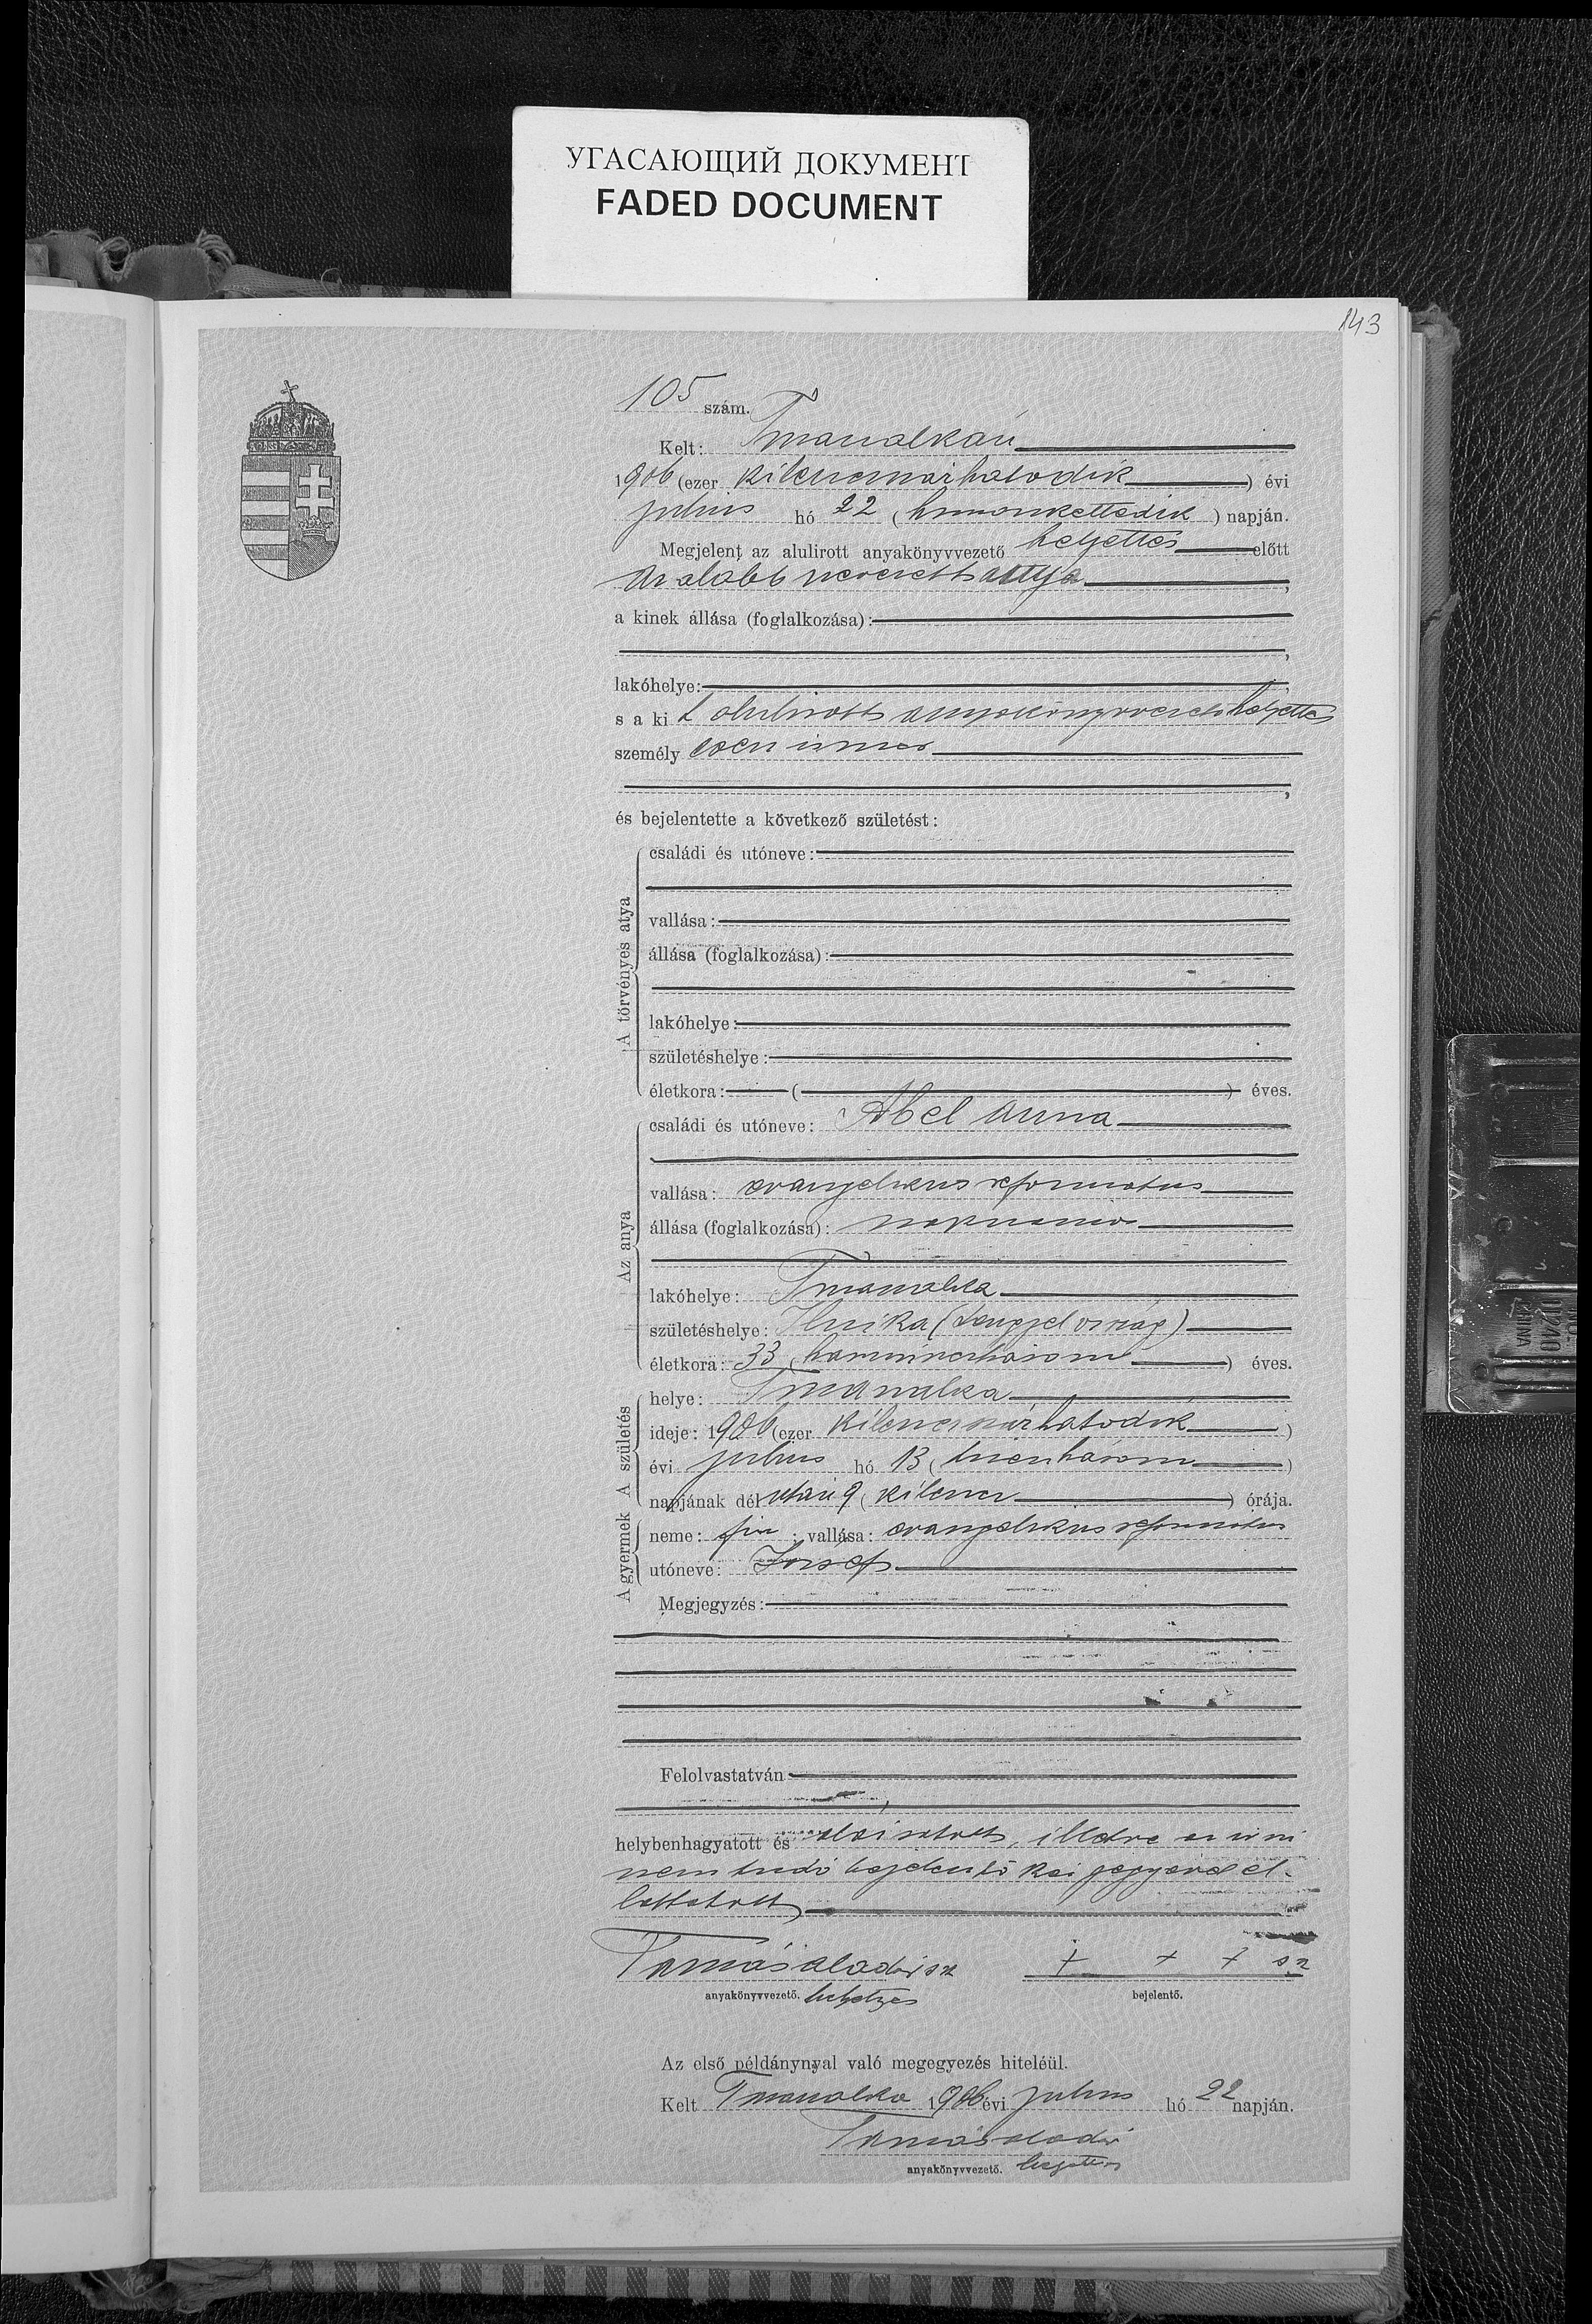 УГАСАЮЩИЙ ДОКУМЕНТ
FADED DOCUMENT
143
105 szám.
Kelt:
1906 (ezer kilencszázhatodik) évi
julius hó 22 (huszonkettedik) napján.
Megjelent az alulirott anyakönyvvezető helyettes előtt
az alább nevezett anya,
a kinek állása (foglalkozása):
lakóhelye:
s a ki t alulirott anyakönyvvezető helyettes
személyesen ismer
és bejelentette a következő születést:
A törvényes atya
családi és utóneve:
vallása:
állása (foglalkozása):
lakóhelye:
születéshelye:
életkora: ( ) éves.
Az anya
családi és utóneve: Abel Anna
vallása: evangelikus reformatus
állása (foglalkozása): napszámos
lakóhelye:
születéshelye: (Lengyelország)
életkora: 33 (harminczhárom) éves.
A születés
helye:
ideje: 1906 (ezer kilencszázhatodik)
évi julius hó 13 (tizenhárom)
napjának délután 9 (kilencz) órája.
A gyermek
neme: fiu; vallása: evangelikus reformatus
utóneve: József
Megjegyzés:
Felolvastatván,
helybenhagyatott és aláiratott, illetve az irni
nem tudó bejelentő kézjegyével el-
láttatott
Tamás Aladár sk
+ + + sk
anyakönyvvezető. helyettes
bejelentő.
Az első példánynyal való megegyezés hiteléül.
Kelt 1906 évi julius hó 22 napján.
Tamás Aladár
anyakönyvvezető. helyettes